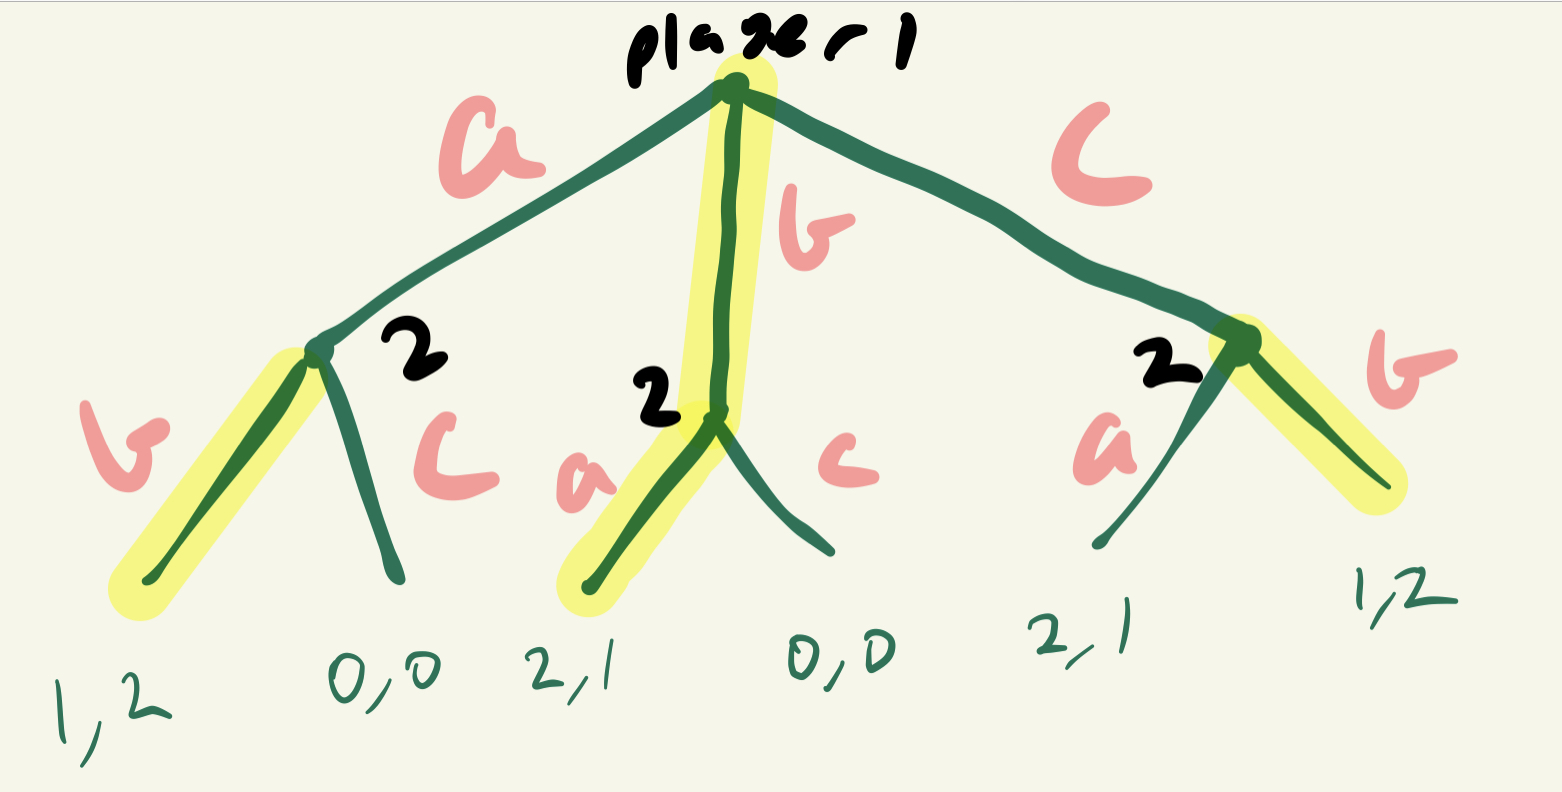 player 1
a
b
C
2
2
2
b
C
a
c
a
b
1,2
0,0
2,1
0,0
2,1
1,2